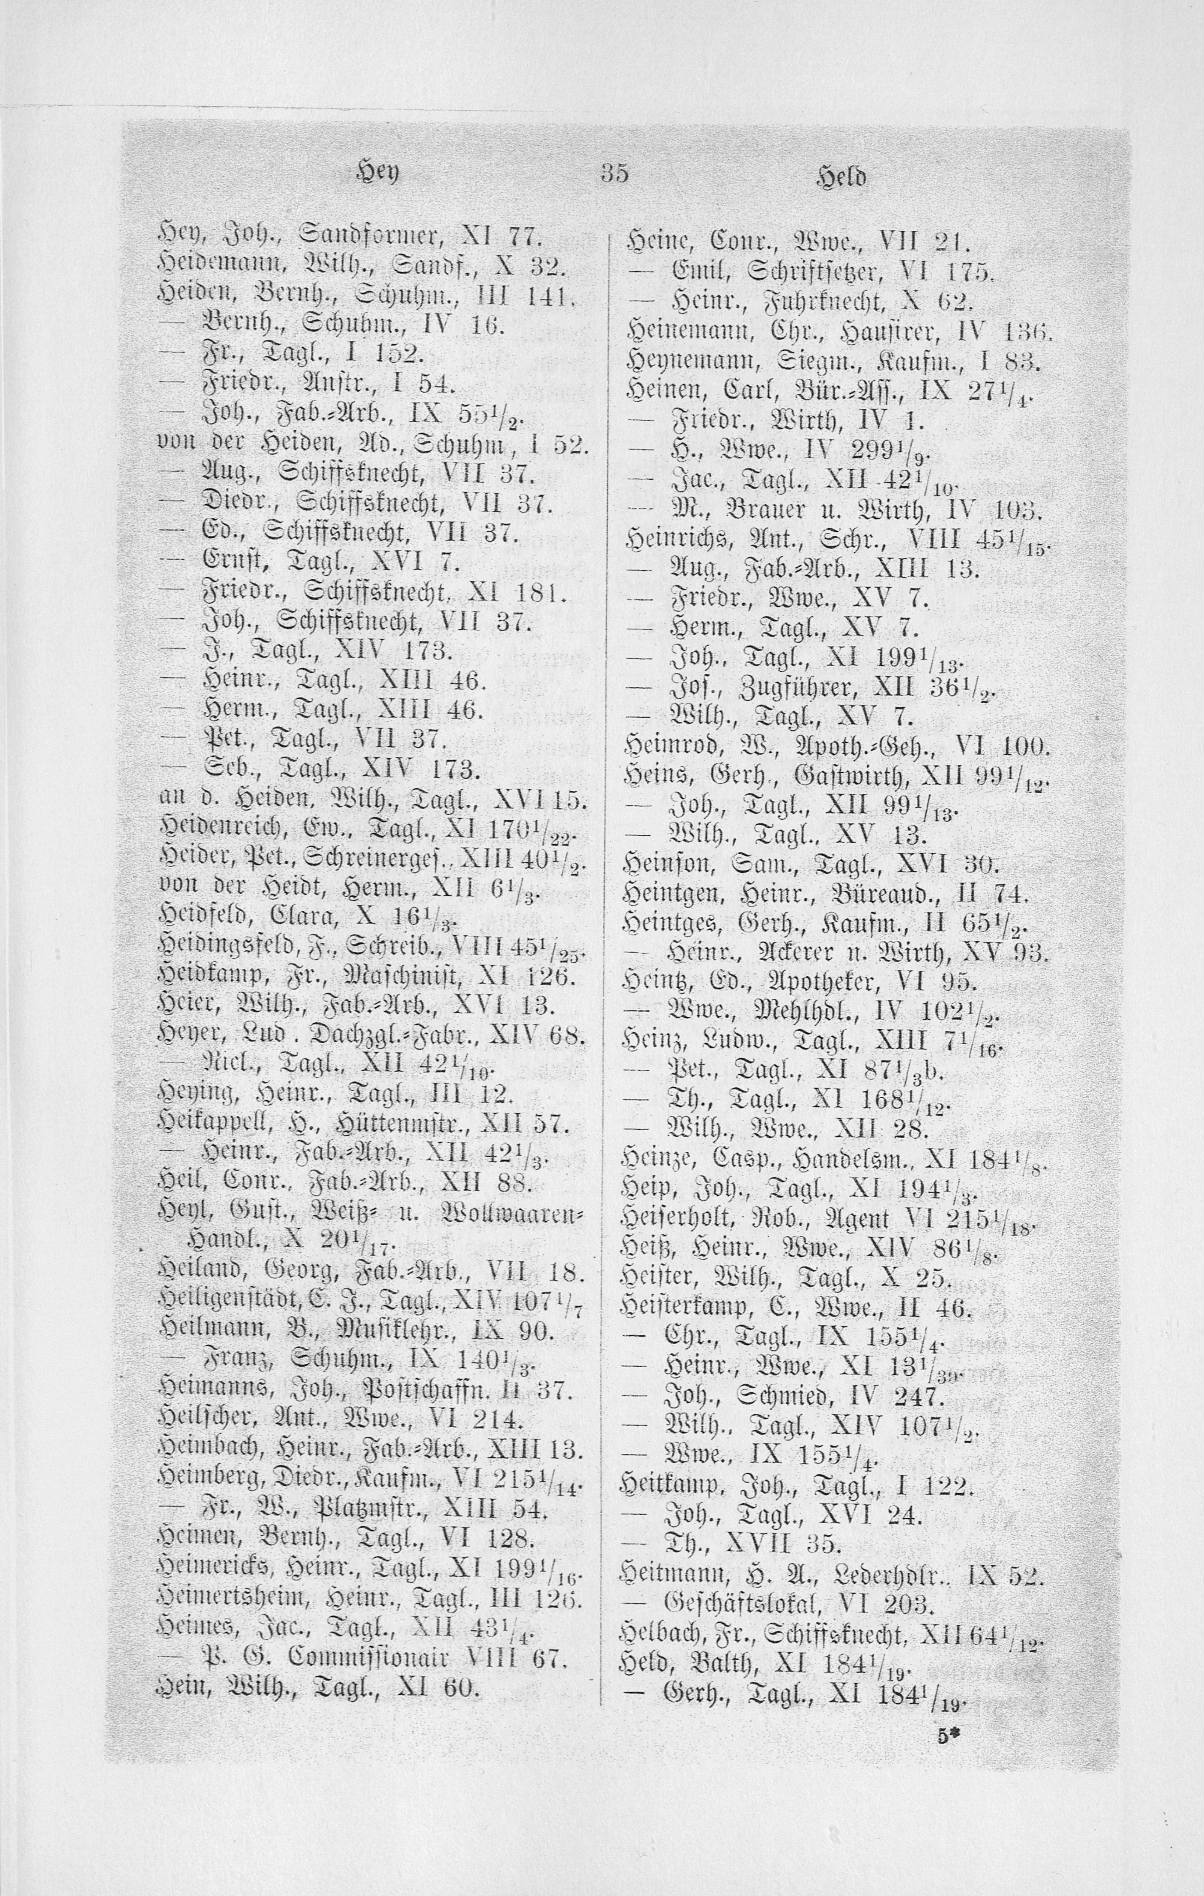 Hey 35 Held
Hey, Joh., Sandformer, XI 77.
Heidemann, Wilh., Sandf., X 32.
Heiden, Bernh., Schuhm., III 141.
— Bernh., Schuhm., IV 16.
— Fr., Tagl., I 152.
— Friedr., Anstr., I 54.
— Joh., Fab.-Arb., IX 55 1/2.
von der Heiden, Ad., Schuhm, I 52.
— Aug., Schiffsknecht, VII 37.
— Diedr., Schiffsknecht, VII 37.
— Ed., Schiffsknecht, VII 37.
— Ernst, Tagl., XVI 7.
— Friedr., Schiffsknecht, XI 181.
— Joh., Schiffsknecht, VII 37.
— J., Tagl., XIV 173.
— Heinr., Tagl., XIII 46.
— Herm., Tagl., XIII 46.
— Pet., Tagl., VII 37.
— Seb., Tagl., XIV 173.
an d. Heiden, Wilh., Tagl., XVI 15.
Heidenreich, Ew., Tagl., XI 170 1/22.
Heider, Pet., Schreinerges., XIII 40 1/2.
von der Heidt, Herm., XII 6 1/3.
Heidfeld, Clara, X 16 1/3.
Heidingsfeld, F., Schreib., VIII 45 1/25.
Heidkamp, Fr., Maschinist, XI 126.
Heier, Wilh., Fab.-Arb., XVI 13.
Heyer, Lud. Dachzgl.-Fabr., XIV 68.
— Nicl., Tagl., XII 42 1/10.
Heying, Heinr., Tagl., III 12.
Heikappell, H., Hüttenmstr., XII 57.
— Heinr., Fab.-Arb., XII 42 1/3.
Heil, Conr., Fab.-Arb., XII 88.
Heyl, Gust., Weiß- u. Wollwaaren-
Handl., X 20 1/17.
Heiland, Georg, Fab.-Arb., VII 18.
Heiligenstädt, C. J., Tagl., XIV 107 1/7
Heilmann, B., Musiklehr., IX 90.
— Franz, Schuhm., IX 140 1/3.
Heimanns, Joh., Postschaffn. II 37.
Heilscher, Ant., Wwe., VI 214.
Heimbach, Heinr., Fab.-Arb., XIII 13.
Heimberg, Diedr., Kaufm., VI 215 1/14.
— Fr., W., Platzmstr., XIII 54.
Heimen, Bernh., Tagl., VI 128.
Heimericks, Heinr., Tagl., XI 199 1/16.
Heimertsheim, Heinr., Tagl., III 126.
Heimes, Jac., Tagl., XII 43 1/4.
— P. G. Commissionair VIII 67.
Hein, Wilh., Tagl., XI 60.
Heine, Conr., Wwe., VII 21.
— Emil, Schriftsetzer, VI 175.
— Heinr., Fuhrknecht, X 62.
Heinemann, Chr., Hausirer, IV 136.
Heynemann, Siegm., Kaufm., I 83.
Heinen, Carl, Bür.-Ass., IX 27 1/4.
— Friedr., Wirth, IV 1.
— H., Wwe., IV 299 1/9.
— Jac., Tagl., XII 42 1/10.
— M., Brauer u. Wirth, IV 103.
Heinrichs, Ant., Schr., VIII 45 1/15.
— Aug., Fab.-Arb., XIII 13.
— Friedr., Wwe., XV 7.
— Herm., Tagl., XV 7.
— Joh., Tagl., XI 199 1/13.
— Jos., Zugführer, XII 36 1/2.
— Wilh., Tagl., XV 7.
Heimrod, W., Apoth.-Geh., VI 100.
Heins, Gerh., Gastwirth, XII 99 1/12.
— Joh., Tagl., XII 99 1/13.
— Wilh., Tagl., XV 13.
Heinson, Sam., Tagl., XVI 30.
Heintgen, Heinr., Büreaud., II 74.
Heintges, Gerh., Kaufm., II 65 1/2.
— Heinr., Ackerer u. Wirth, XV 93.
Heintz, Ed., Apotheker, VI 95.
— Wwe., Mehlhdl., IV 102 1/2.
Heinz, Ludw., Tagl., XIII 7 1/16.
— Pet., Tagl., XI 87 1/3b.
— Th., Tagl., XI 168 1/12.
— Wilh., Wwe., XII 28.
Heinze, Casp., Handelsm., XI 184 1/8.
Heip, Joh., Tagl., XI 194 1/3.
Heiserholt, Rob., Agent VI 215 1/18.
Heiß, Heinr., Wwe., XIV 86 1/8.
Heister, Wilh., Tagl., X 25.
Heisterkamp, C., Wwe., II 46.
— Chr., Tagl., IX 155 1/4.
— Heinr., Wwe., XI 13 1/39.
— Joh., Schmied, IV 247.
— Wilh., Tagl., XIV 107 1/2.
— Wwe., IX 155 1/4.
Heitkamp, Joh., Tagl., I 122.
— Joh., Tagl., XVI 24.
— Th., XVII 35.
Heitmann, H. A., Lederhdlr., IX 52.
— Geschäftslokal, VI 203.
Helbach, Fr., Schiffsknecht, XII 64 1/12.
Held, Balth, XI 184 1/19.
— Gerh., Tagl., XI 184 1/19.
5*